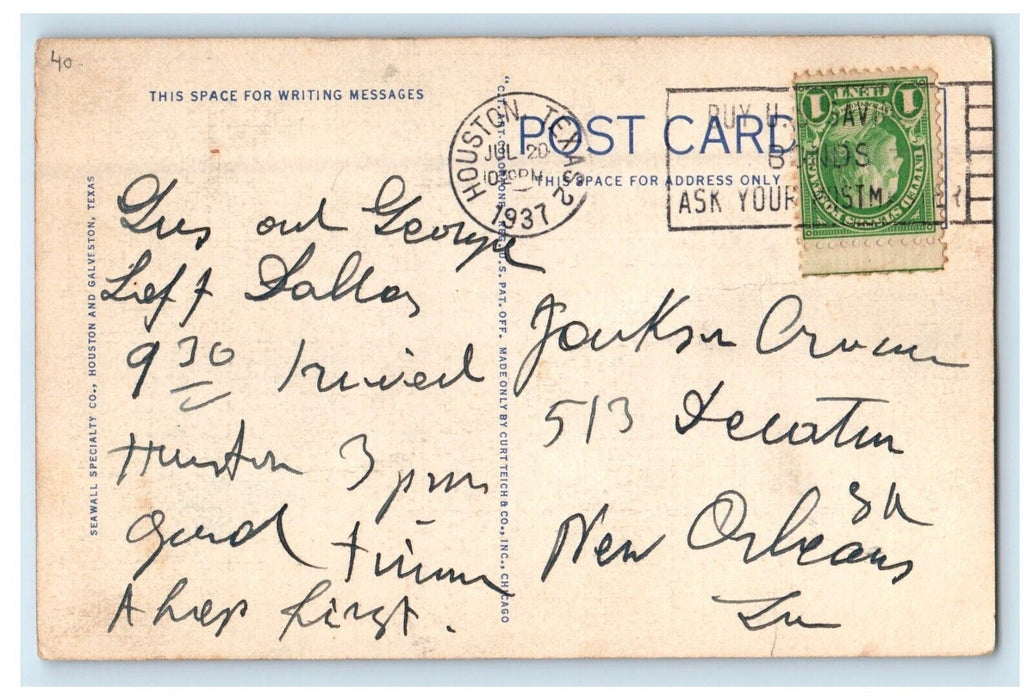 40
THIS SPACE FOR WRITING MESSAGES
POST CARD
THIS SPACE FOR ADDRESS ONLY
HOUSTON, TEXAS 2
JUL 20
PM
1937
BUY U.S. SAV
B NDS
ASK YOUR POSTM R
1 CENT 1
SEAWALL SPECIALTY CO., HOUSTON AND GALVESTON, TEXAS
REG. U.S. PAT. OFF. MADE ONLY BY CURT TEICH & CO., INC., CHICAGO
Gus and George
Left Dallas
9 30 Arrived
Huston 3 pm
Good
first.
Jackson
513 Decatur
St
New Orleans
La